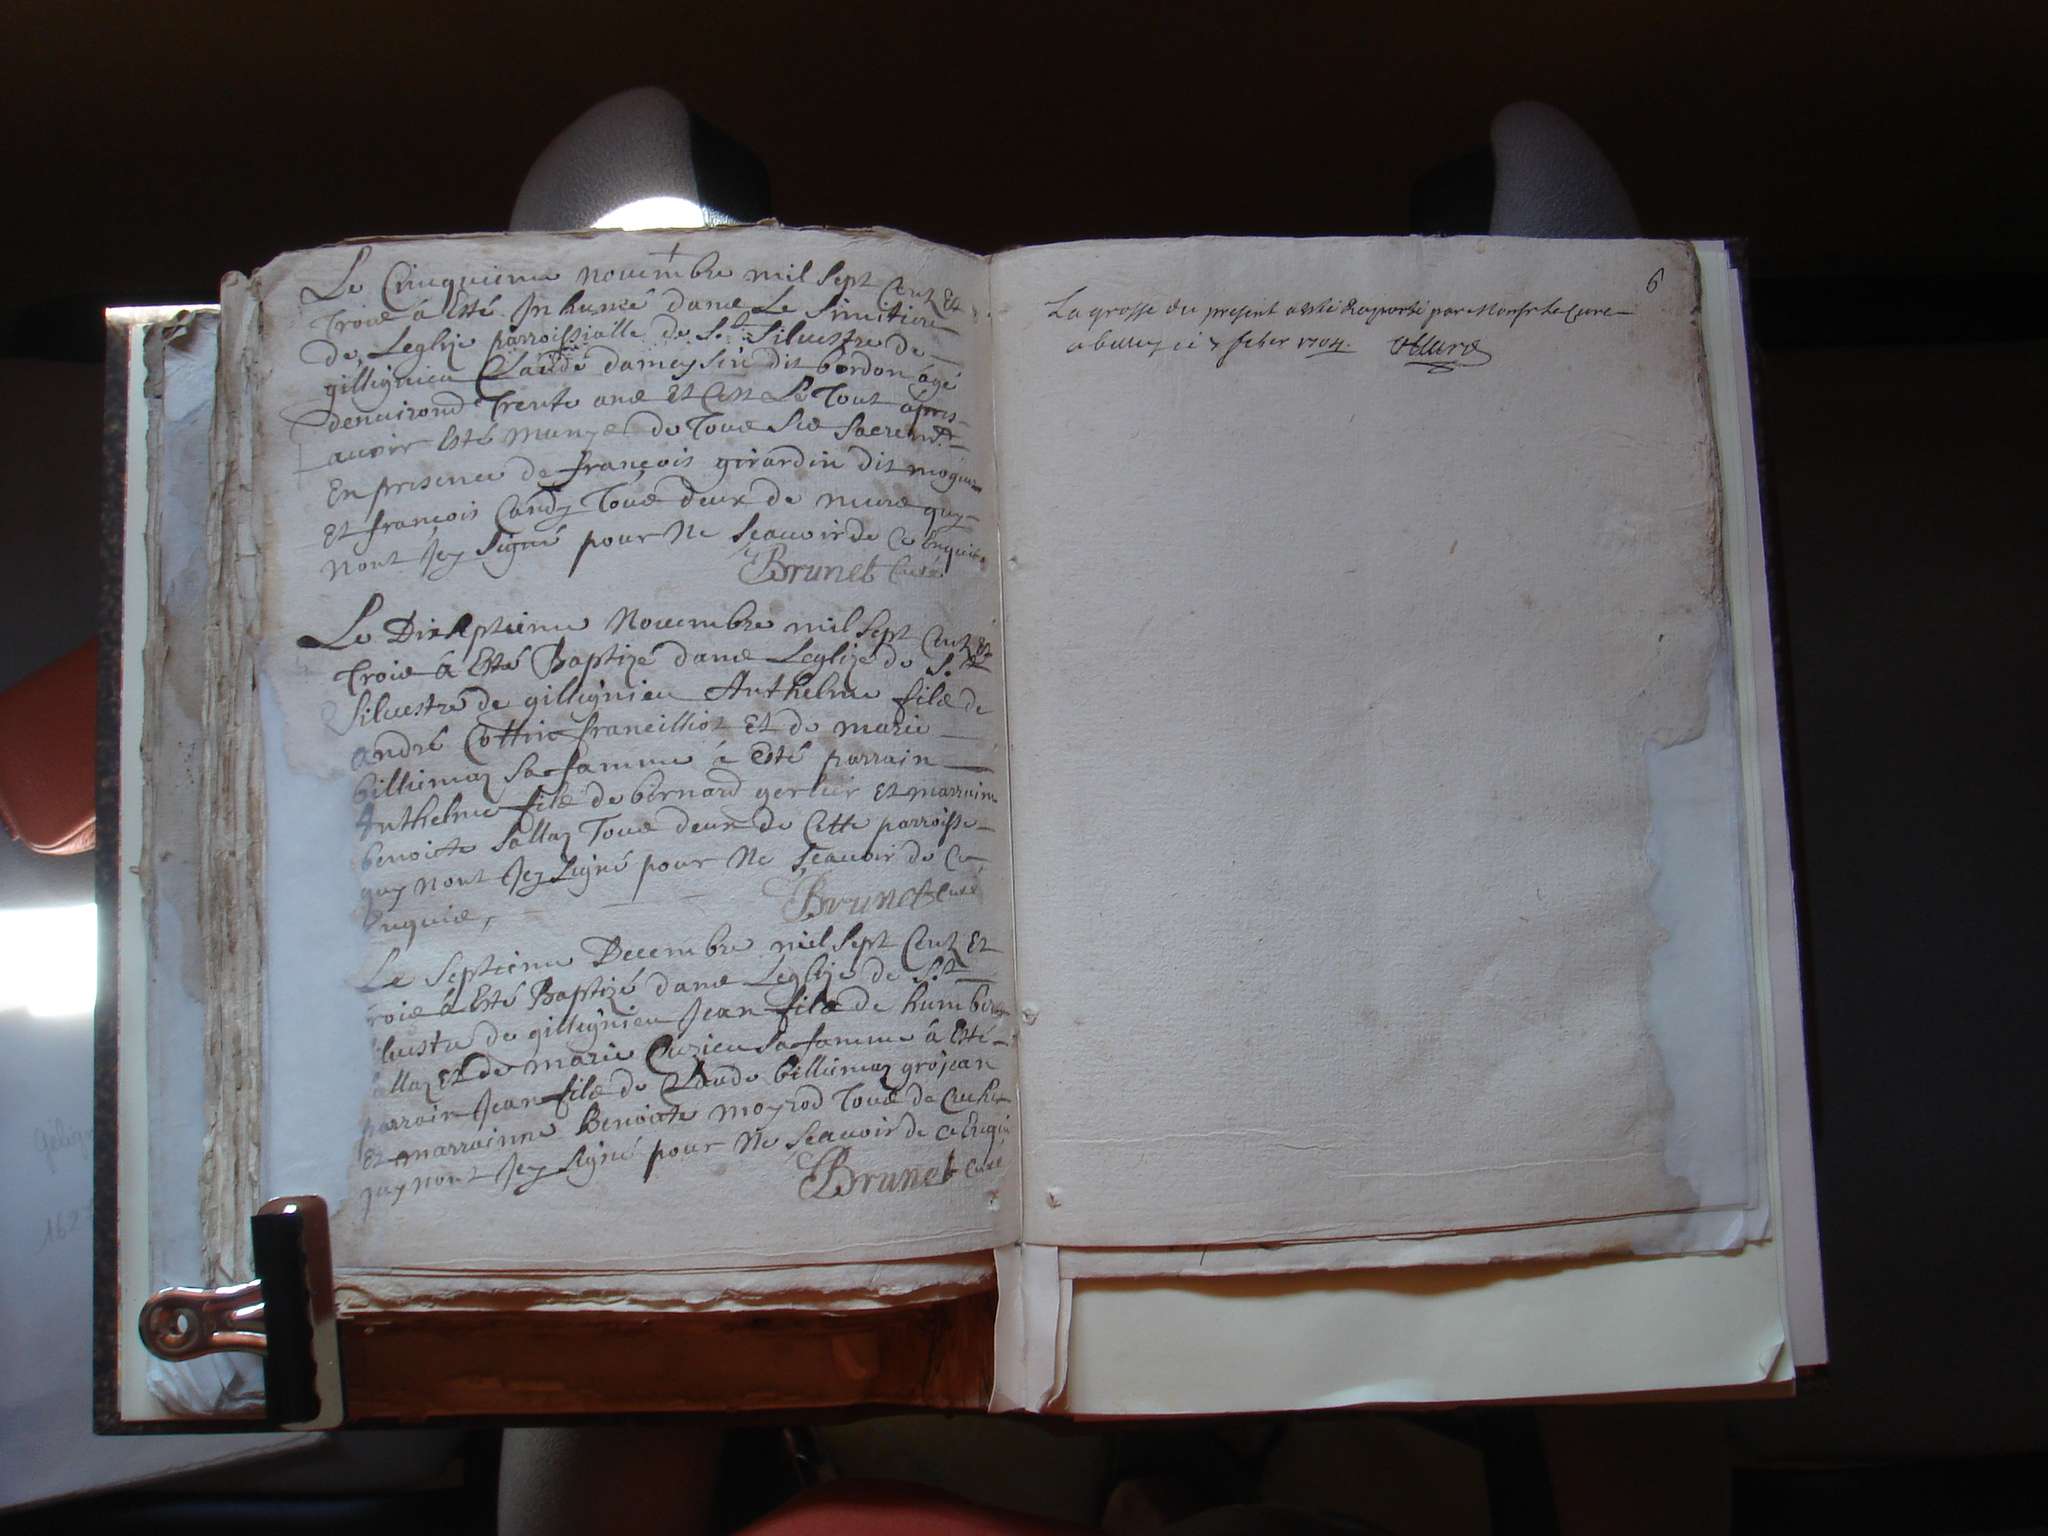 Le Cinquieme novembre mil sept Cent Et
Trois á Esté Inhumé dans Le Simitiere
de Leglize parroissialle de St. Siluestre de
gillignieu Claude dameysin dit bordon âgé
denuirond Trente ans Et Cest Le Tout apres
auoir Esté munye de Tous Les Sacremts.
En presence de françois girardin dit
Et françois Candy Tous deux de mure quy
nont Jcy Signé pour Ne Scauoir de ce Enquis
Brunet Curé
Le Dixseptieme Nouembre mil Sept Cent Et
Trois á Esté Baptizé dans Leglize de St.
Siluestre de gillignieu Anthelme fils de
andré Cottin francilliot Et de marie
billiemaz Sa famme á Esté parrain
Anthelme fils de bernard gerlier Et marraine
benoicte Sallaz Tous deux de Cette parroisse
quy nont Jcy Signé pour Ne Scauoir de Ce
Enquis,
Brunet Curé
Le Septieme Decembre mil Sept Cent Et
rois á Esté Baptizé dans Leglize de St.
iluestre de gillignieu Jean fils de humber
allaz Et de marie Curieu Sa famme á Esté
parrain Jean fils de Claude billiemaz grojean
Et marrainne Benoicte moyrod Tous de
quy nont Jcy Signé pour Ne Scauoir de ce Enqui
Brunet Curé
6
La grosse du present a esté Raporté par Monsr Le Curé
a belley ce 7 feber 1704.